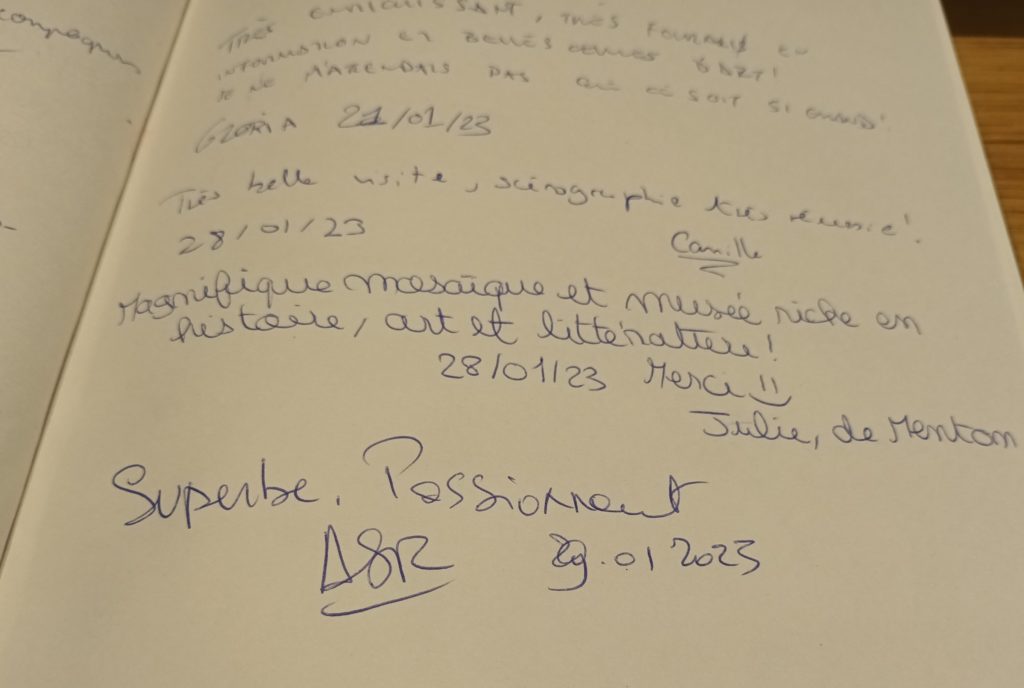 compagnie
TRÈS ENRICHISSANT, TRÈS FOURNIS EN
INFORMATION ET BELLES OEUVRES D'ART!
JE NE M'ATENDAIS PAS QUE CE SOIT SI GRAND!
GLORIA 21/01/23
Très belle visite, scénographie très réussie!
28/01/23 Camille
Magnifique mosaïque et musée riche en
histoire, art et littérature!
28/01/23 Merci!!
Julie, de Menton
Superbe. Passionnant
ASR 29.01 2023